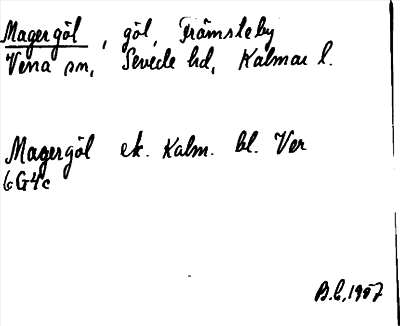 Magergöl, göl, Främsteby
Vena sn, Sevede hd, Kalmar l.
Magergöl ek. Kalm. bl. Ver
6G4c